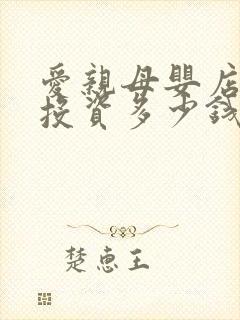 愛親母嬰店
投資多少錢
楚惠王